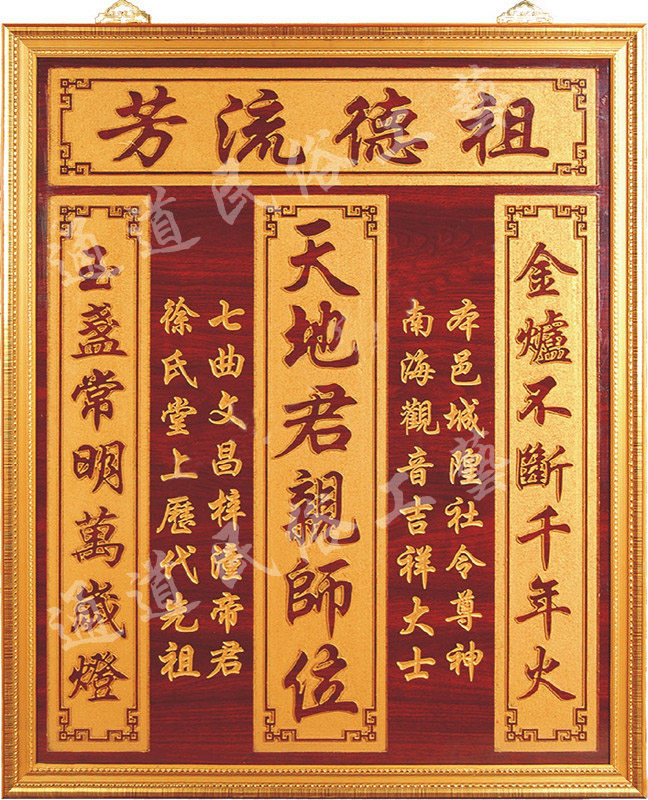 祖德流芳
金爐不斷千年火
本邑城隍社令尊神
南海觀音吉祥大士
天地君親師位
七曲文昌梓潼帝君
徐氏堂上歷代先祖
玉盞常明萬歲燈
通道民俗工藝
通道民俗工藝